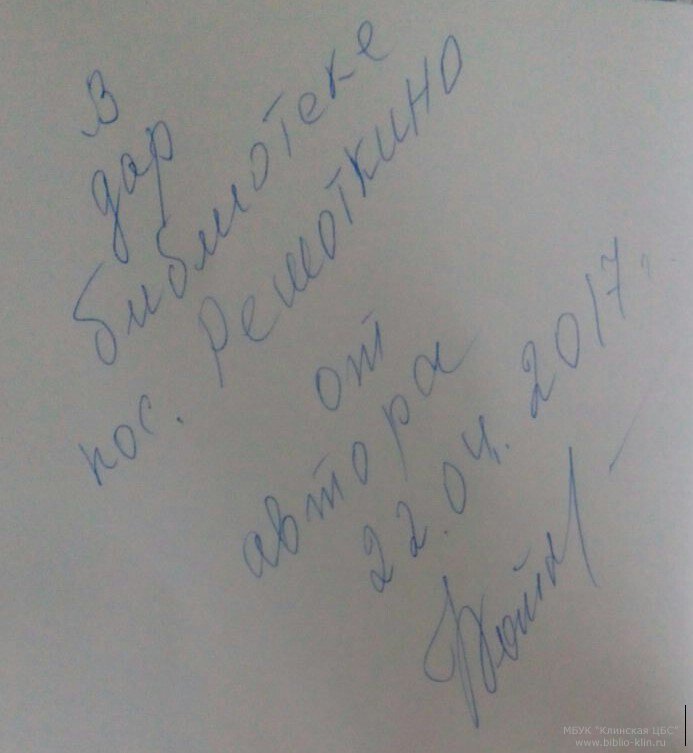 В
дар
библиотеке
пос. Решоткино
от
автора
22.04.2017.
МБУК "Клинская ЦБС"
www.biblio-klin.ru